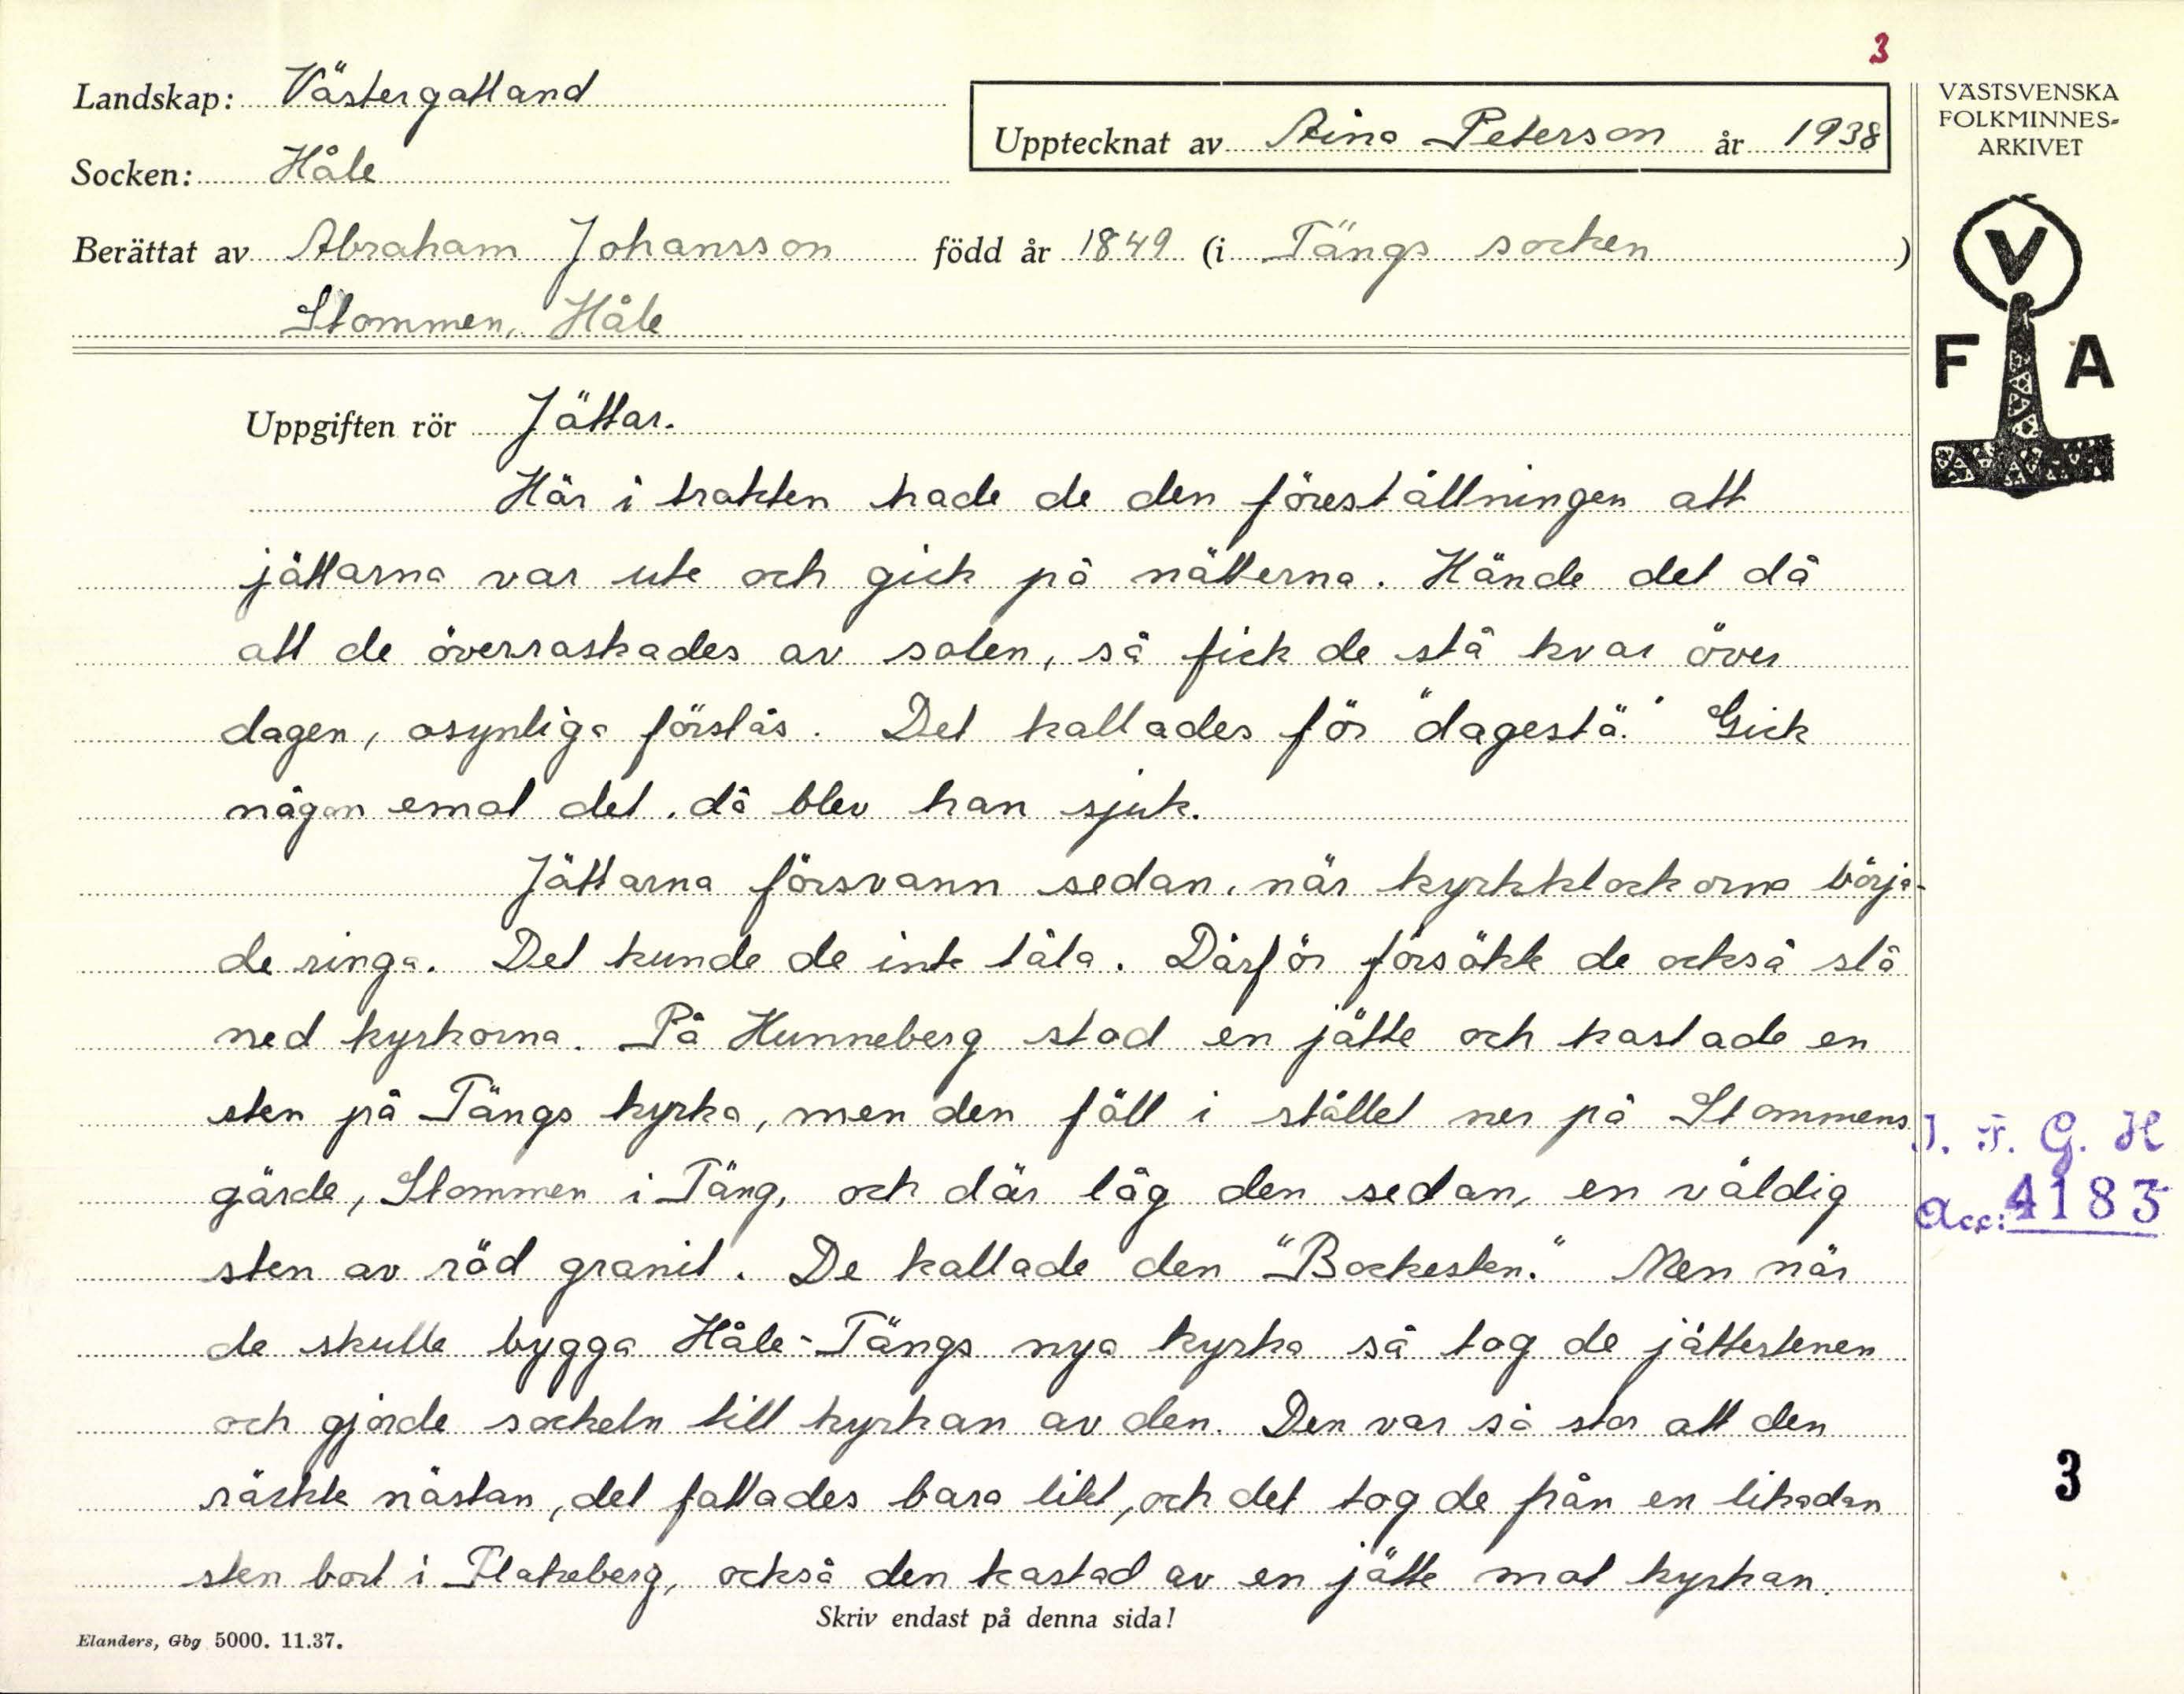 3
Landskap: Västergötland
Upptecknat av Aina Peterson år 1938
VÄSTSVENSKA
FOLKMINNES-
ARKIVET
Socken: Håle
Berättat av Abraham Johansson född år 1849 (i Tängs socken)
Stommen, Håle
V
F A
Uppgiften rör Jättar.
Här i trakten hade de den föreställningen att
jättarna var ute och gick på nätterna. Hände det då
att de överraskades av solen, så fick de stå kvar över
dagen, osynliga förstås. Det kallades för "dagestå." Gick
någon emot det, då blev han sjuk.
Jättarna försvann sedan, när kyrkklockorna börja-
de ringa. Det kunde de inte tåla. Därför försökte de också slå
ned kyrkorna. På Hunneberg stod en jätte och kastade en
sten på Tängs kyrka, men den föll i stället ner på Stommens
gärde, Stommen i Täng, och där låg den sedan, en väldig
sten av röd granit. De kallade den "Bockesten." Men när
de skulle bygga Håle-Tängs nya kyrka så tog de jättestenen
och gjorde sockeln till kyrkan av den. Den var så stor att den
räckte nästan, det fattades bara litet, och det tog de från en likadan
sten bort i Flakeberg, också den kastad av en jätte mot kyrkan.
I. F. G. H
Acc: 4183
3
Skriv endast på denna sida!
Elanders, Gbg 5000. 11.37.